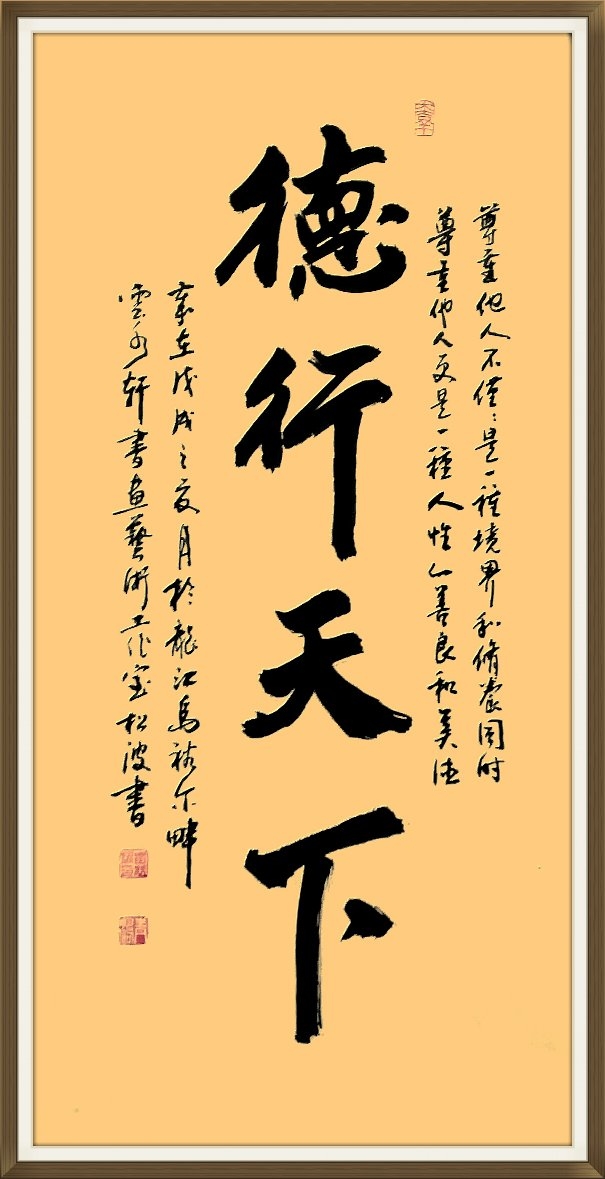 尊重他人不僅僅是一種境界和脩養同時
尊重他人更是一種人性之善良和美德
德行天下
歲在戊戌之夏月於龍江烏裕尔畔
雲水軒書畫藝術工作室松波書